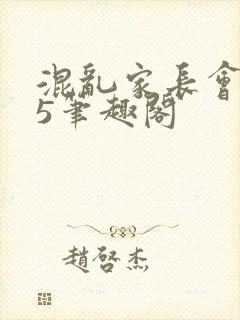 混亂家長會
5筆趣閣
趙啓杰